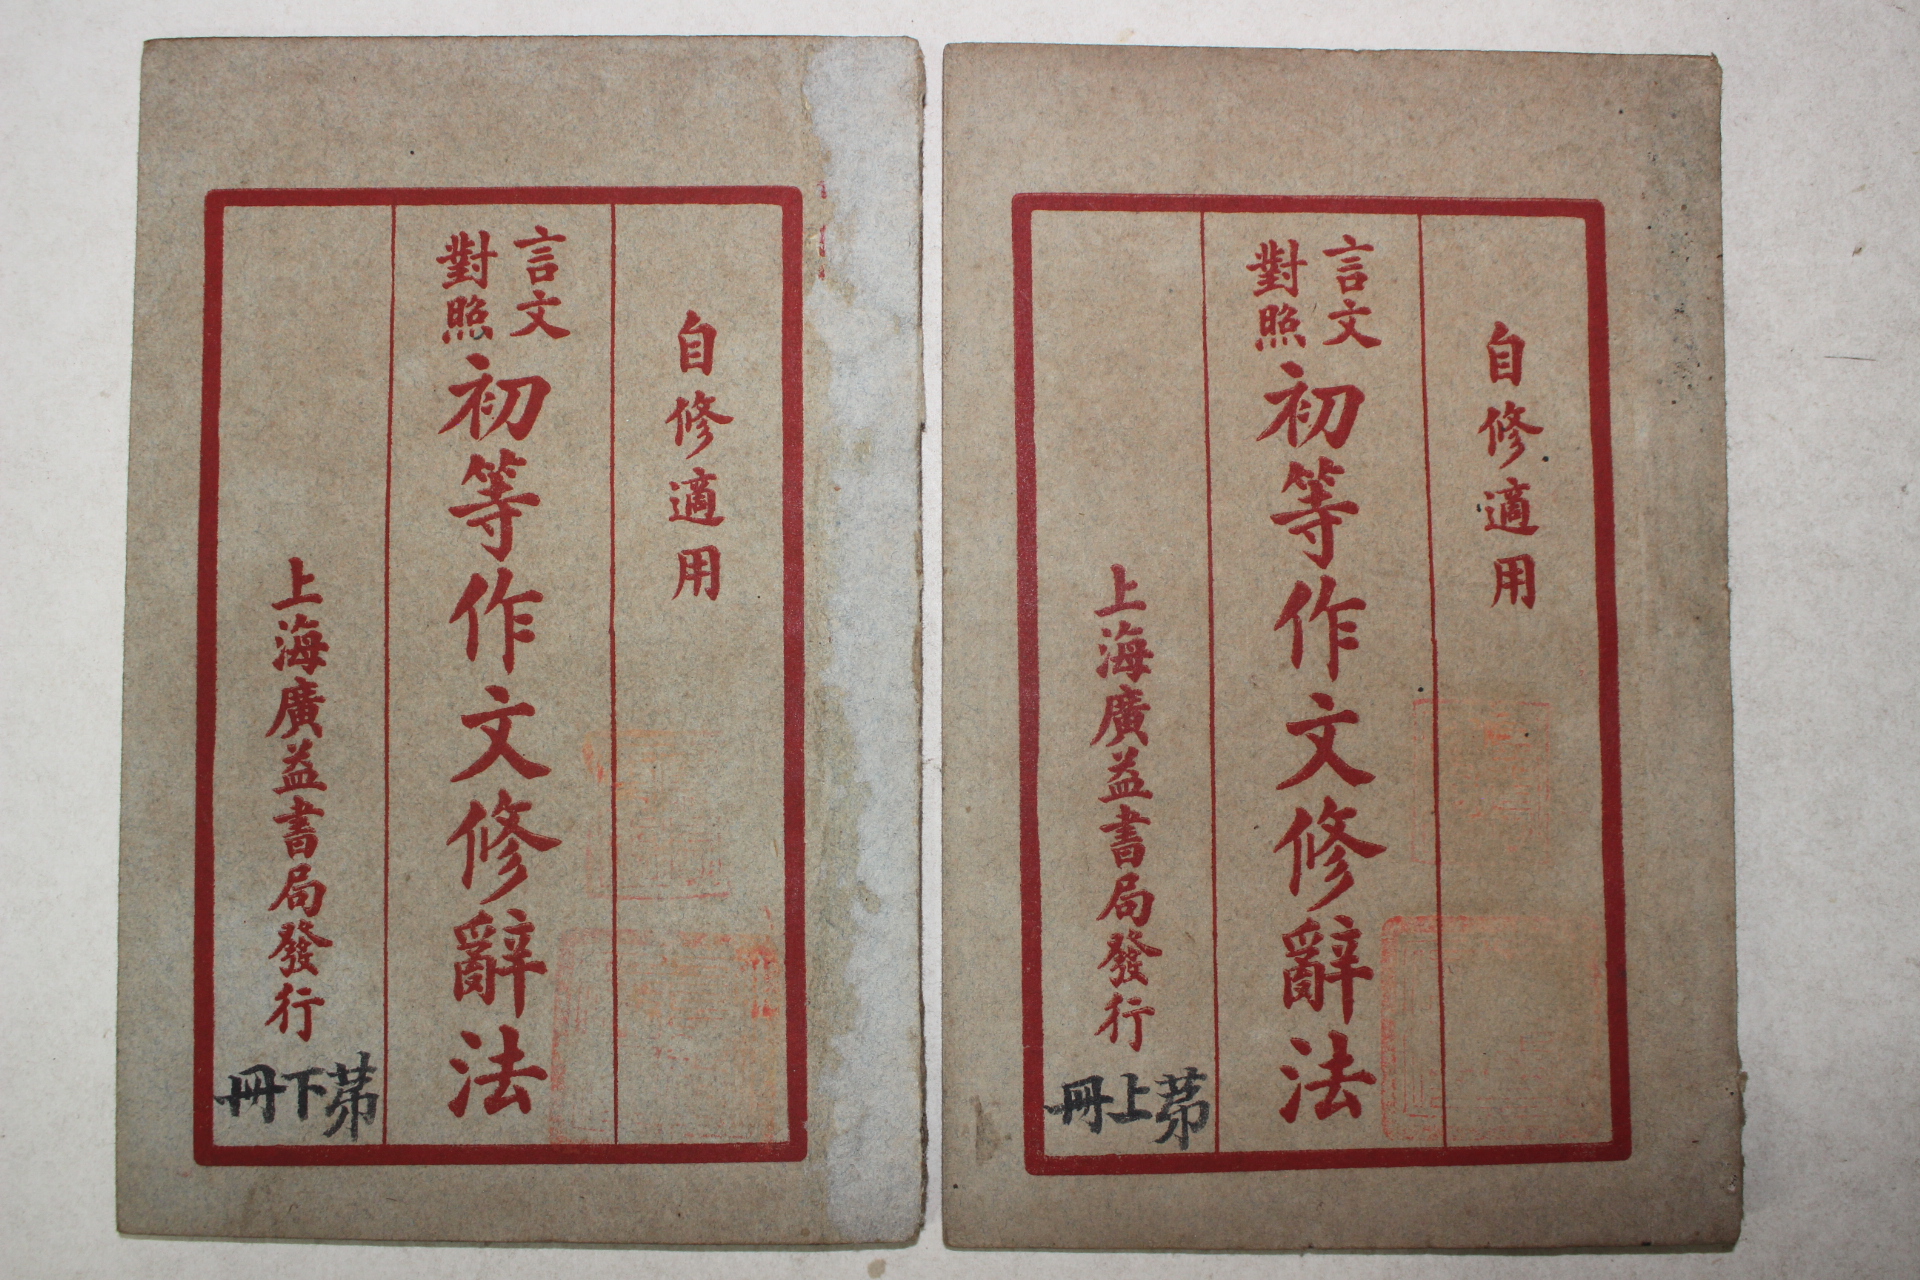 自修適用
言文
對照
初等作文修辭法
上海廣益書局發行
苐下冊
自修適用
言文
對照
初等作文修辭法
上海廣益書局發行
苐上冊